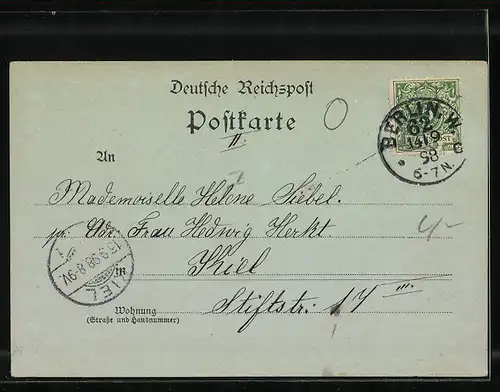 Deutsche Reichspost
Postkarte
II
An
Mademoiselle Helene Siebel.
pr. Adr. Frau Hedwig Herkt
in Kiel
Stiftstr. 17 III.
Wohnung
(Straße und Hausnummer)
BERLIN W.
62
14/9
98
6-7N.
C
KIEL
15.9.98.8-9V
1